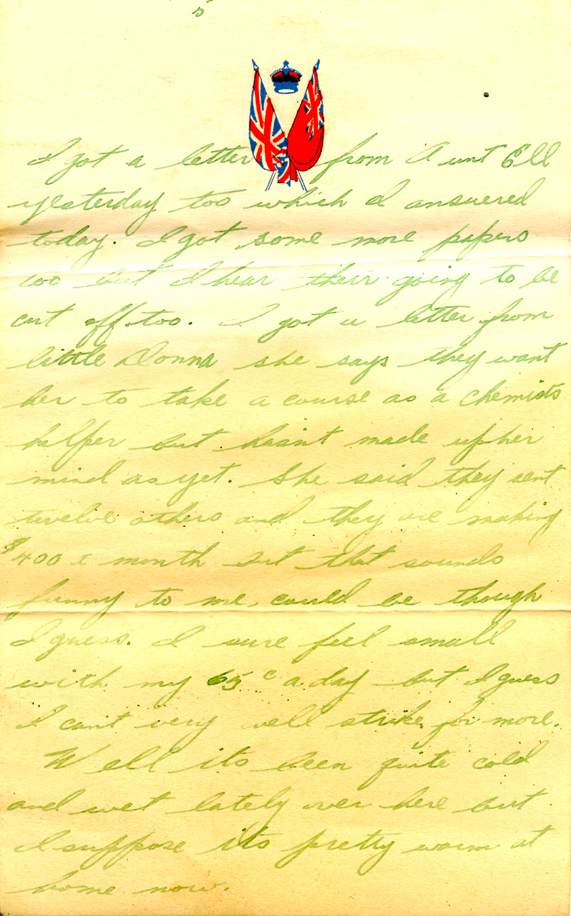 5
I got a letter from Aunt Ell
yesterday too which I answered
today. I got some more papers
too but I hear their going to be
cut off too. I got a letter from
little Donna she says they want
her to take a course as a chemists
helper but hasnt made up her
mind as yet. She said they sent
twelve others and they are making
$400 a month but that sounds
funny to me, could be though
I guess. I sure feel small
with my 65¢ a day but I guess
I cant very well strike for more.
Well its been quite cold
and wet lately over here but
I suppose its pretty warm at
home now.